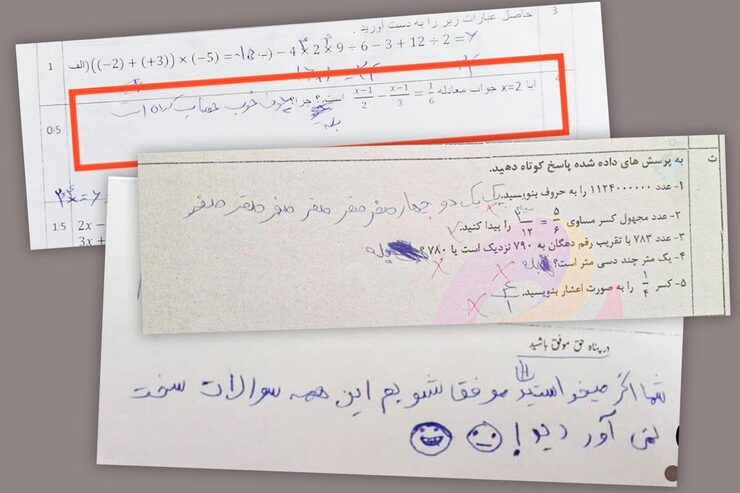 حاصل عبارات زیر را به دست آورید. 3
1 الف) ((-2) + (+3)) × (-5) = -4 × 2 × 9 ÷ 6 - 3 + 12 ÷ 2 =
آیا x=2 جواب معادله x-1/2 - x-1/3 = 1/6 است؟ چرا؟ بله چون خوب حساب کرده است
0/5
1/5 2x -
3x +
ث به پرسش های داده شده پاسخ کوتاه دهید.
۱- عدد ۱۱۲۴۰۰۰۰۰۰ را به حروف بنویسید. یک یک دو چهار صفر صفر صفر صفر صفر صفر
۲- عدد مجهول کسر مساوی ۵/۶ = /۱۲ را پیدا کنید.
۳- عدد ۷۸۳ با تقریب رقم دهگان به ۷۹۰ نزدیک است یا ۷۸۰؟ بله
۴- یک متر چند دسی متر است؟ بله
۵- کسر ۱/۴ را به صورت اعشار بنویسید. ۴/۱
در پناه حق موفق باشید
شما اگر میخواستید موفق شویم این همه سوالات سخت
نمی آوردید!